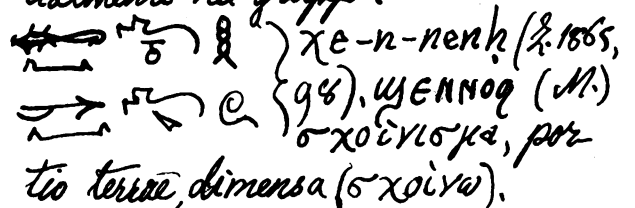 χe-n-nenḥ (Z. 1865,
98). ϣⲉⲛⲛⲟϥ (M.)
σχοίνισμα, por
tio terrae, dimensa (σχοίνω).